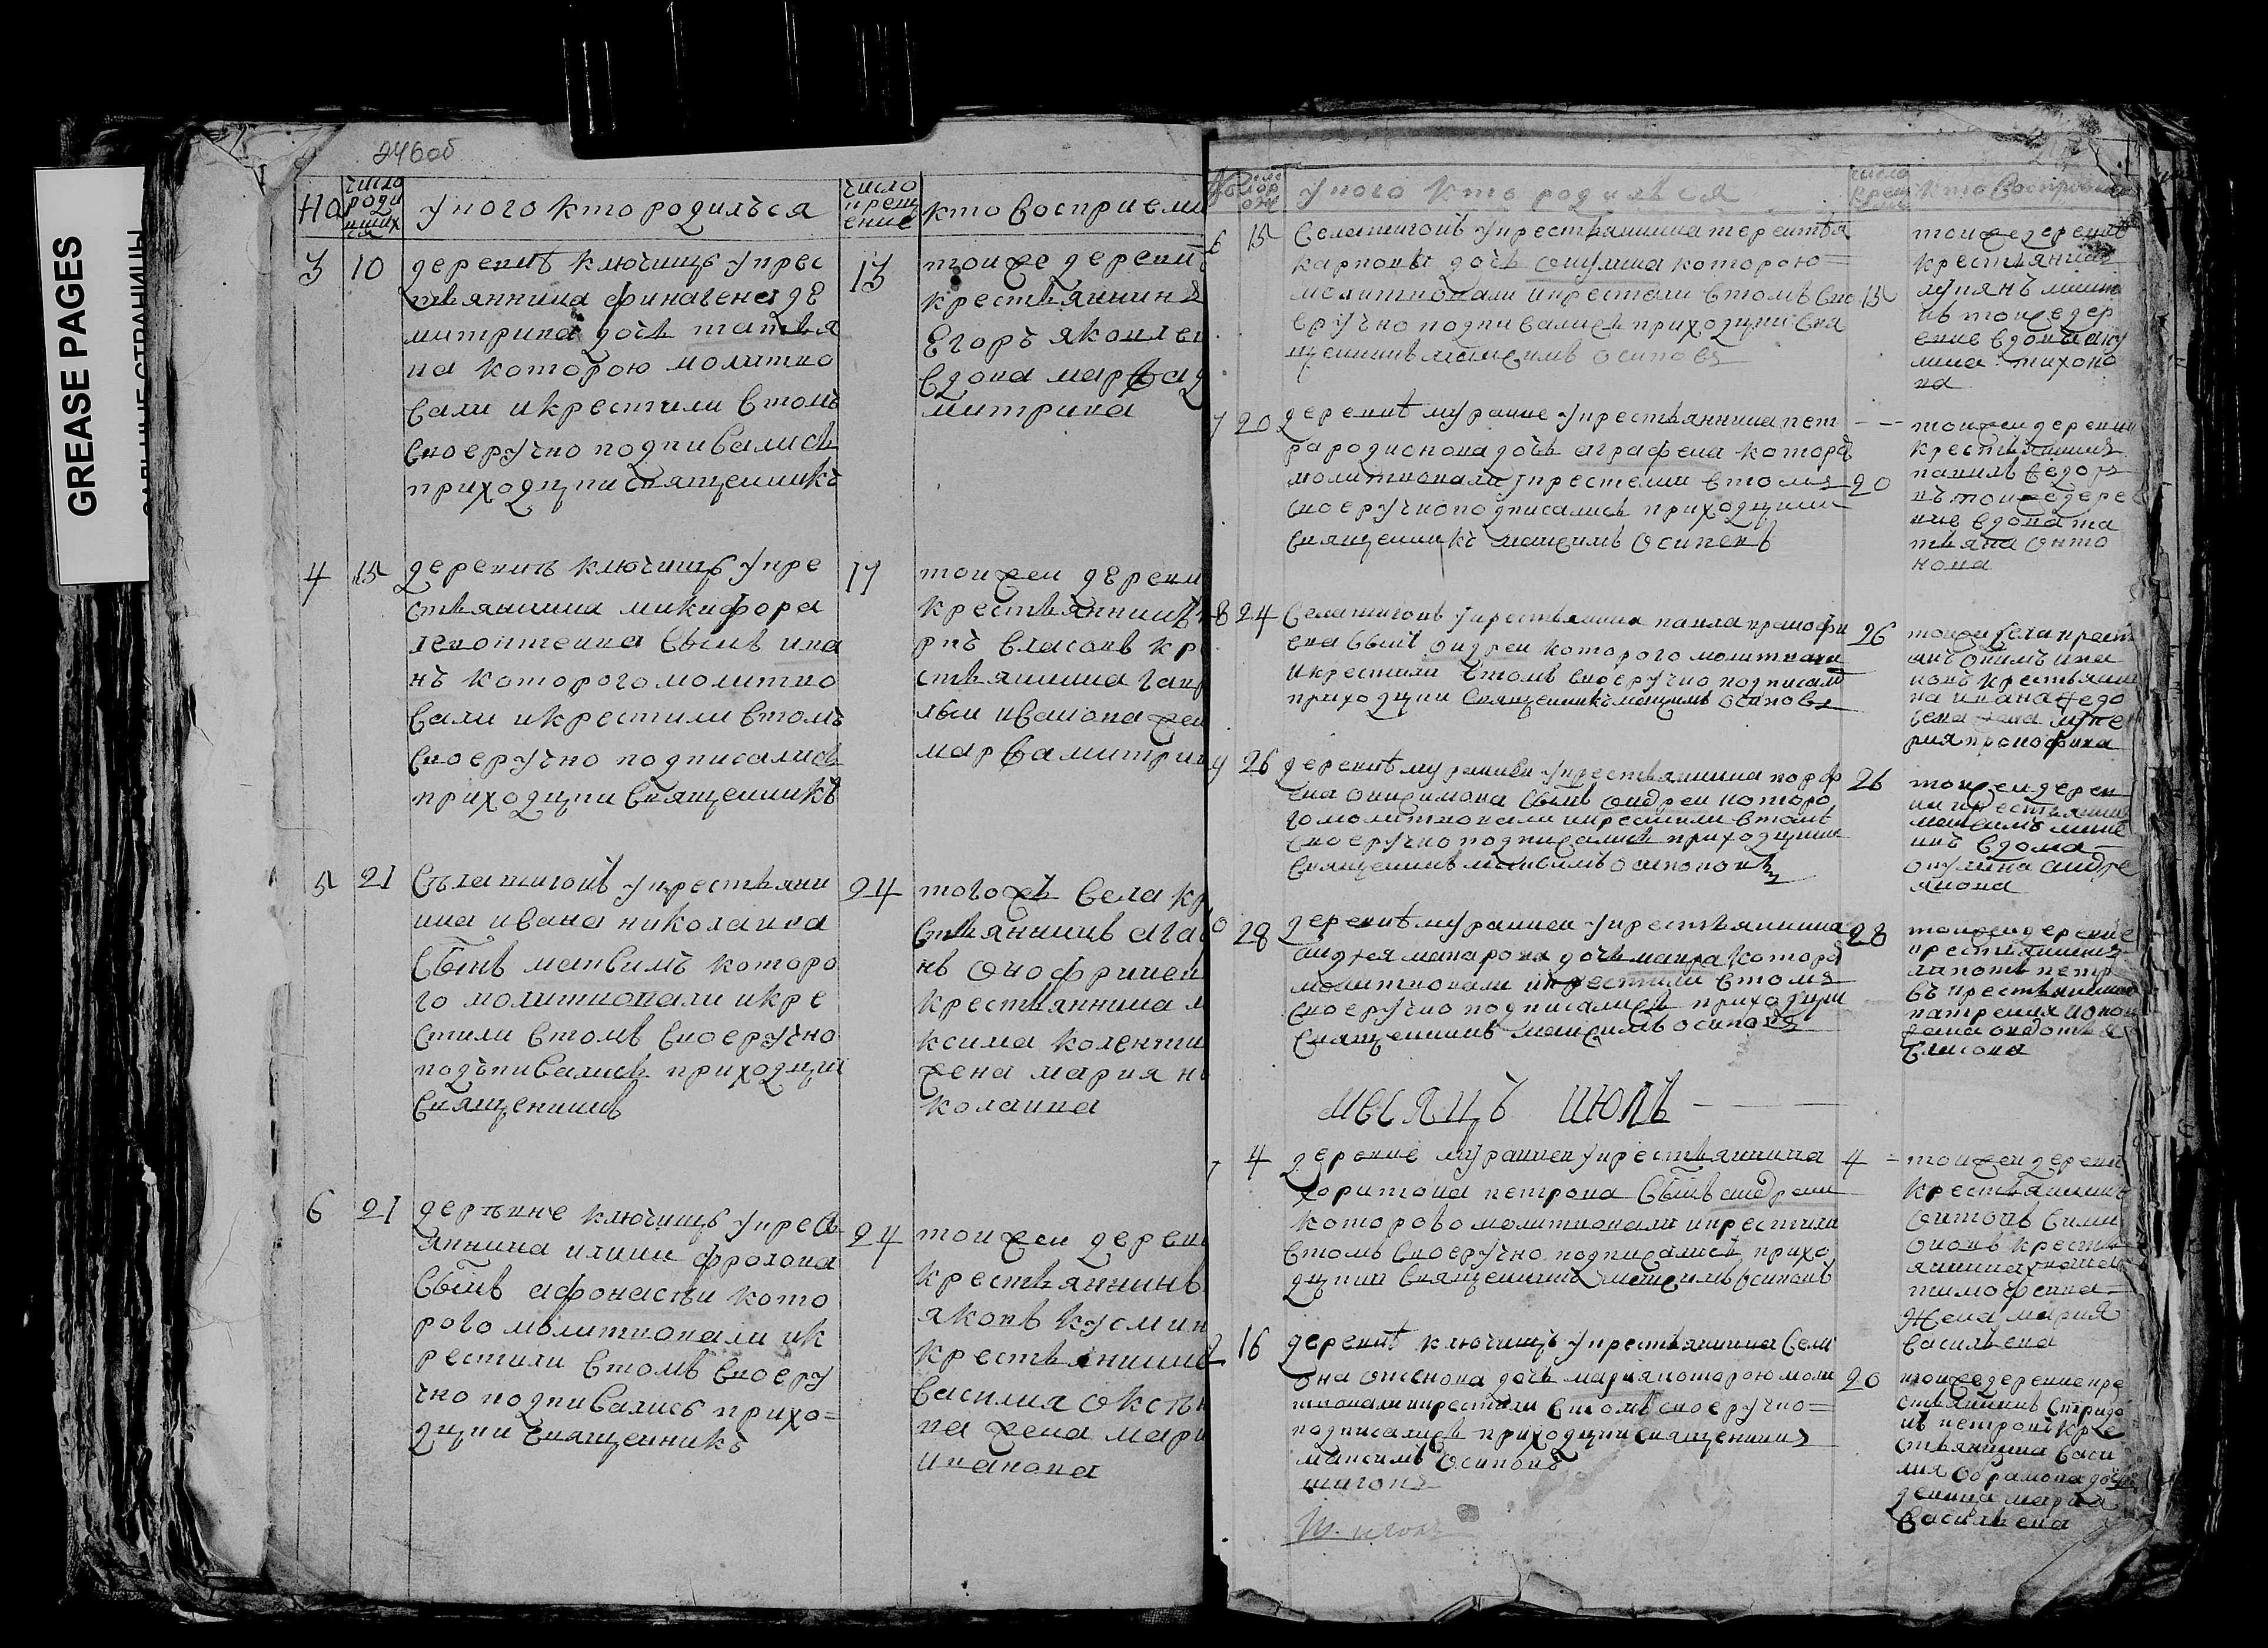 GREASE PAGES
246об
Но
число
роди
вших
ся
у ково кто родилъся
число
крещ
ение
кто восприемни
3
10
деревнѣ ключищъ у крес
тьяннина финагена де
митрива дочь татья
на которою молитво
вали и крестили в томъ
своеручно подпивались
приходцки священникъ
13
тои же деревни
крестьяннинъ
Егоръ яковлев
вдова марфа д
митрива
4
15
деревнъ ключищъ у кре
стьяннина микифора
левонтеива сынъ ива
нъ которого молитво
вали и крестили в томъ
своеручно подписались
приходцки священникъ
17
тои жеи деревни
крестьяннинъ
ръ власовъ кр
стьяннина гавр
лы иванова жен
марфа митрив
5
21
съла шигонъ у крестьянни
нна ивана николаива
сынъ максимъ которо
го молитвовали и кре
стили в томъ своеручно
подъпивались приходцки
священникъ
24
тогожъ села кр
стьяннинъ ага
нъ онофриев
крестьяннина м
ксима колентие
жена мария ни
колаива
6
21
деръвне ключищъ у крес
яннина илии фролова
сынъ афонасъи кото
рого молитвовали ик
рестили в томъ своеру
чно подпивались прихо=
дцки священникъ
24
тои жеи деревн
крестьяннинъ
яковъ кусмин
крестьяннина
василия оксен
ва жена мари
иванова
у ково кто родилься
кто восприем
6
15
села шигонъ у крестьяннина терентья
карповы дочь окулина которою=
молитвовали и крестели в томъ сво
еручно подпивались приходцки свя
щенникъ максимъ осиповъ
15
тои же деревнѣ
крестьяннинъ
лукянъ мики
нъ тои же дер
евне вдова аку
лина тихоно
ва
7
20
деревнѣ муранке у крестьяннина пет
ра родионова дочь аграфена котора
молитвовали у крестели в томъ
своеручно подписались приходцкии
священникъ максимъ осиповъ
20
тои жеи деревни
крестьяннинъ
павилъ федор
въ тои же дерев
ние вдова та
тьяна онто
нова
8
24
села шигонъ у крестьяннина павла прокофи
ева сынъ ондреи которого молитвовали
и крестили в томъ своеручно подписали
приходцки священникъ максимъ осиповъ
26
тои же села крест
янъ онимъ ива
новъ крестьянни
на ивана федо
сева жена луке
рия прокофива
9
26
деревнѣ муранки у крестьяннина порфи
ена онисимова сынъ ондреи которо
го молитвовали и крестили в томъ
своеручно подписались приходцкии
священникъ максимъ осиповъ
26
тои жеи дерев
ни крестьяннин
максимъ мики
нъ вдова=
окулина андре
янова
10
28
деревнѣ муранкеи у крестьяннина
андрея макарова дочь мавра котора
молитвовали и крестили в томъ
своеручно подписались приходцки
священникъ максимъ осиповъ
28
тои жеи деревне
крестьяннинъ
лавонъ петр
въ крестьяннин
патрекия ионов
жена овдотья
власова
месяцъ июль
4
деревне муранкеи у крестьяннина
харитона петрова сынъ андреи
которово молитвовали и крестили
в томъ своеручно подписались прихо
дцкии священникъ максимъ осиповъ
4
тои жеи деревни
крестьяннинъ
онтонъ сими
оновъ кресть
яннина
тимофеива
жена мария
васильева
16
деревнѣ ключищъ у крестьяннина семи
она оксенова дочь мария которою моли
твовали и крестели в томъ своеручно=
подписались приходцки священникъ
максимъ осиповъ
шигонъ
20
тои же деревне кре
стьяннинъ спиридо
нъ петровъ кре
стьяннина васи
лия обрамова доч
девица мария
васильева